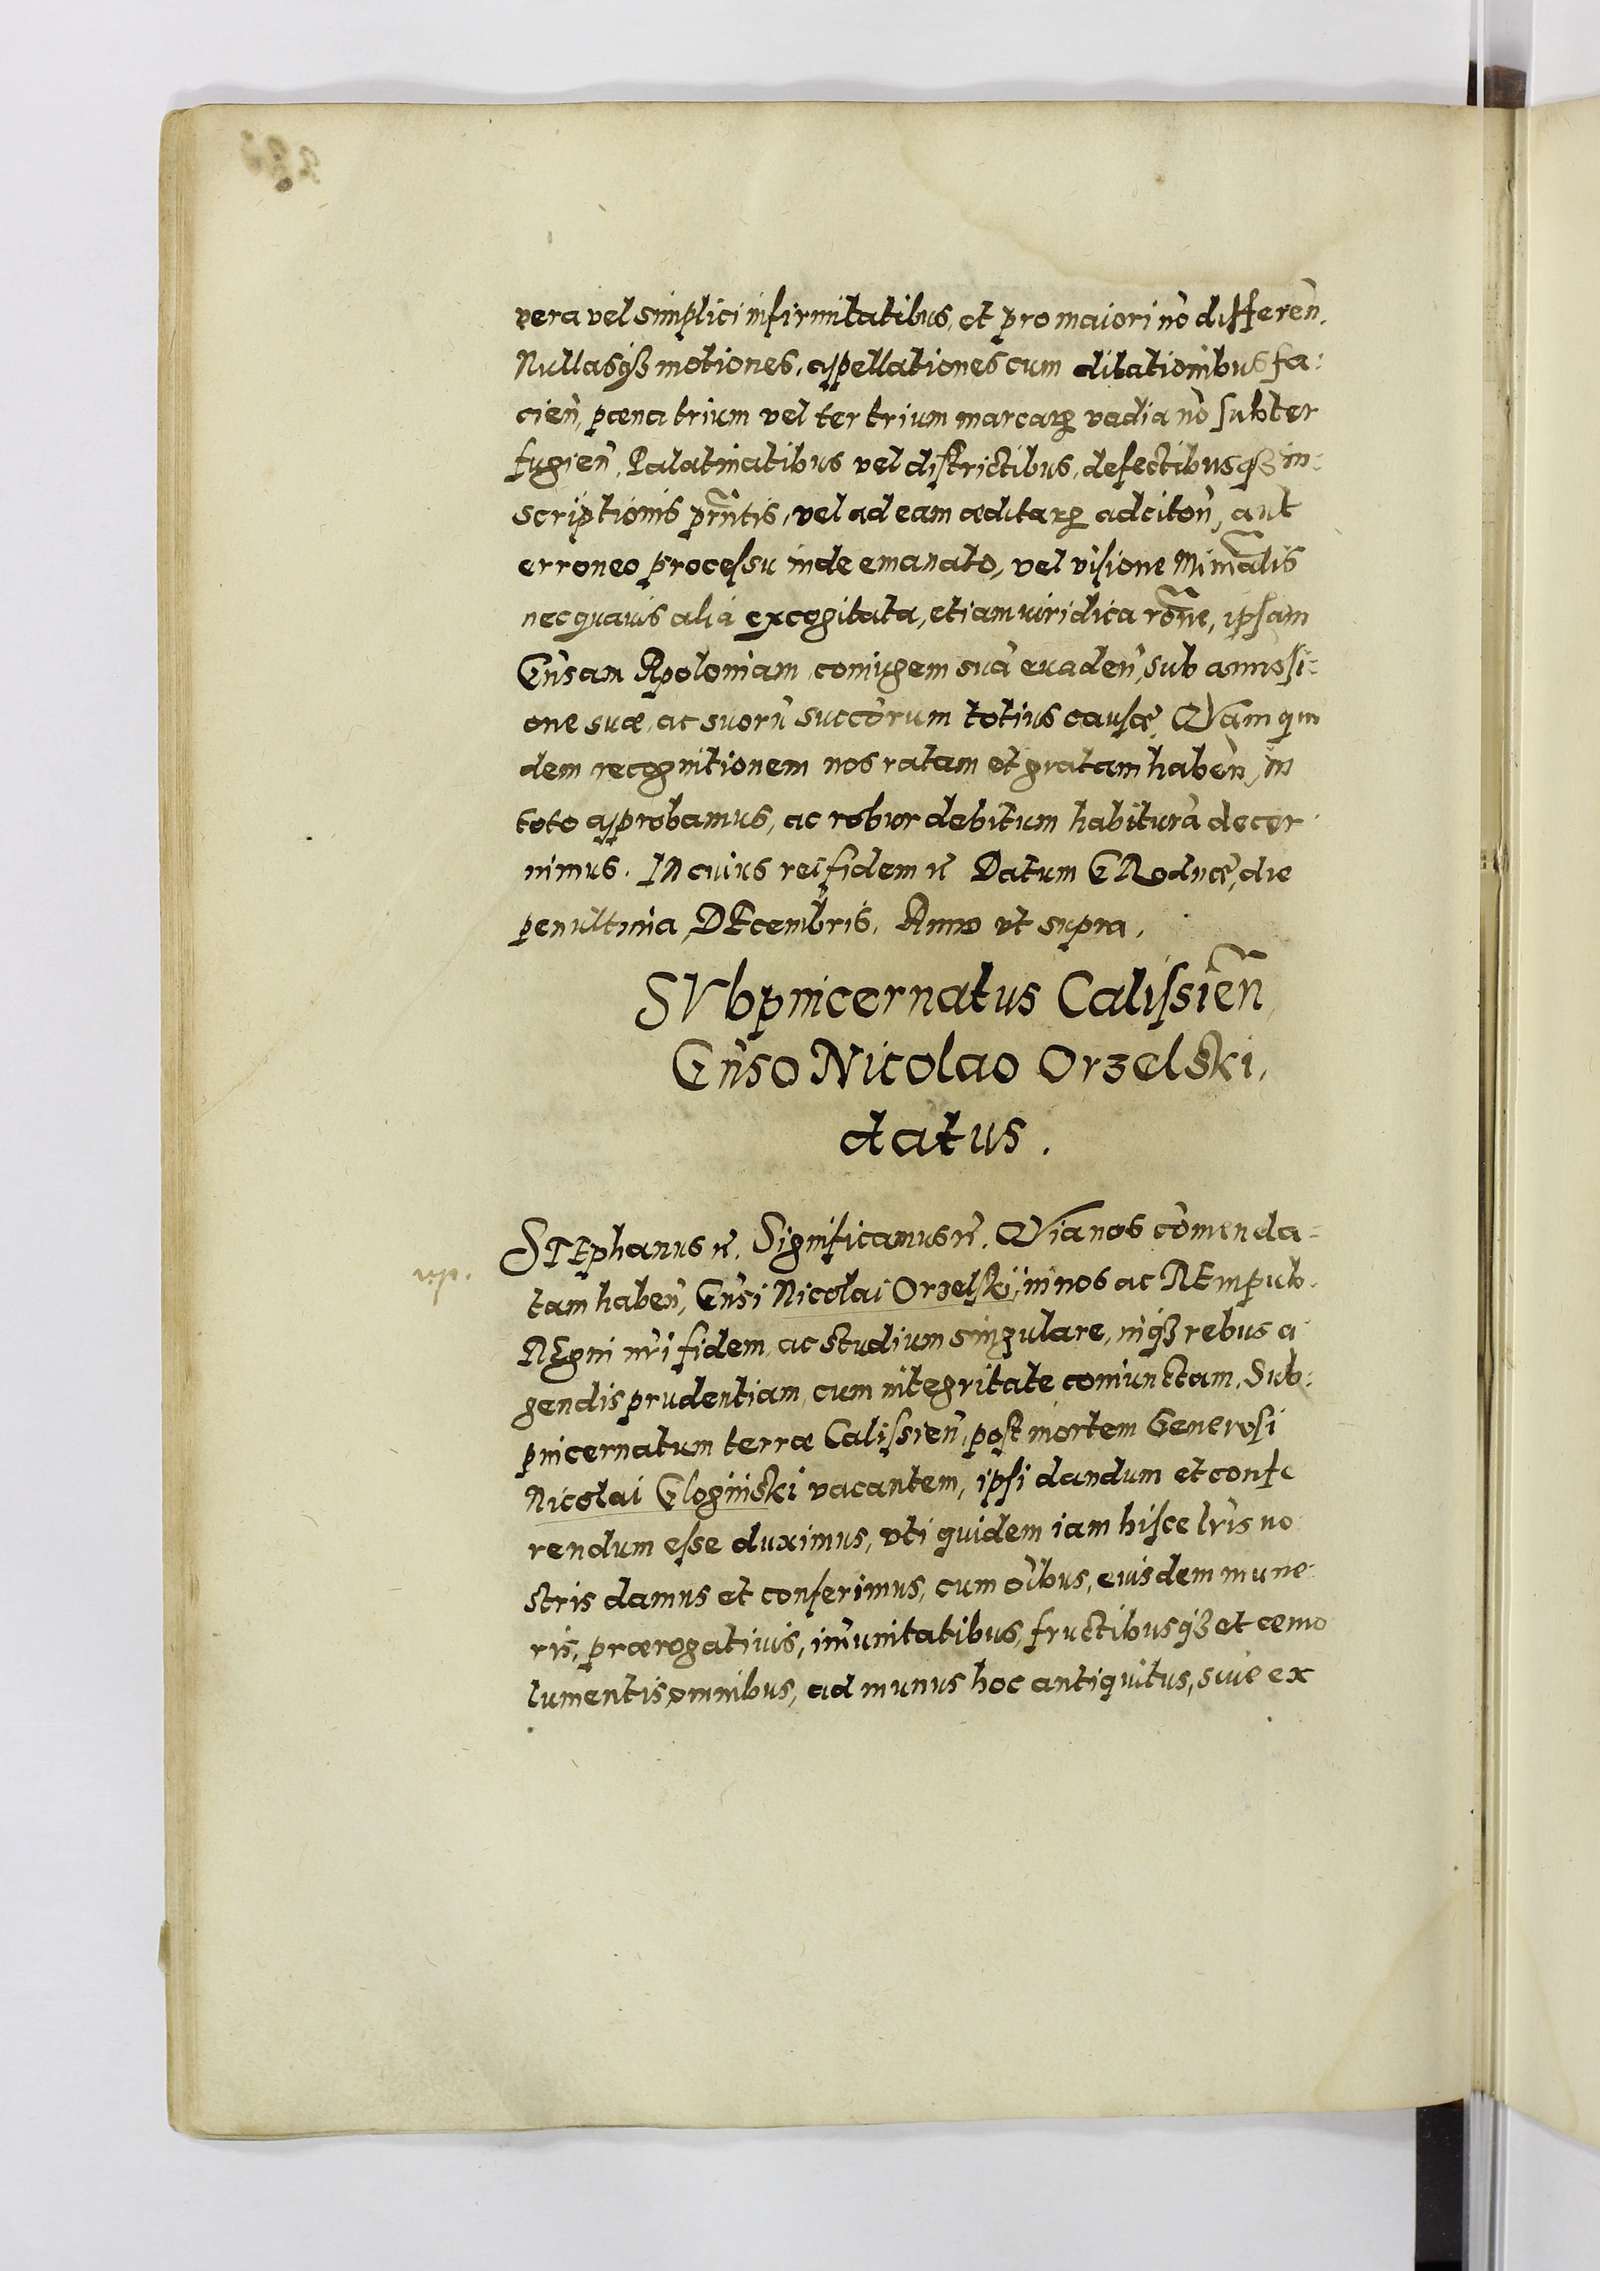 vera vel simplici infirmitatibus, et pro maiori nō differen̄,
Nullasqꝫ motiones, appellationes cum dilationibus fa:
cien̄, pœna trium vel ter trium marcaꝝ vadia nō subter
fugien̄, Palatinatibus vel diſtrictibus, defectibusqꝫ in:
scriptionis prn̄tis, vel ad eam æditaꝝ adciton̄, aut
erroneo proceſsu inde emanato, vel viſione Minr̄alis
nec quauis alia excogitata, etiam iuridica rōne, ipſam
Gn̄sam Apoloniam coniugem suā euaden̄, sub amiſsi:
one suæ, ac suorū succōrum totius cauſæ, QVam qui
dem recognitionem nos ratam et gratam haben̄, in
toto approbamus, ac robur debitum habiturā decer
nimus. IN cuius rei fidem ꝛc Datum GRodnæ, die
penultima, DEcembris. Anno vt supra.
SVbpincernatus Caliſsien̄
Gn̄so Nicolao Orzelski,
datus.
STEphanus ꝛc. Significamus ꝛc. QVia nos cōmenda=
tam haben̄, Gn̄si Nicolai Orzelſki, in nos ac REmpub.
REgni nr̄i fidem, ac studium singulare, inqꝫ rebus a
gendis prudentiam, cum integritate coniunctam, Sub:
pincernatum terræ Caliſsien̄, poſt mortem Generoſi
Nicolai Gloginski vacantem, ipſi dandum et confe
rendum eſse duximus, vti quidem iam hiſce lr̄is no
stris damus et conferimus, cum ōibus, eiusdem mune
ris, prærogatiuis, im̄unitatibus, fructibusqꝫ et æmo
lumentis omnibus, ad munus hoc antiquitus, siue ex